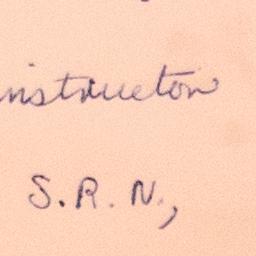 instructor
S.R.N.,